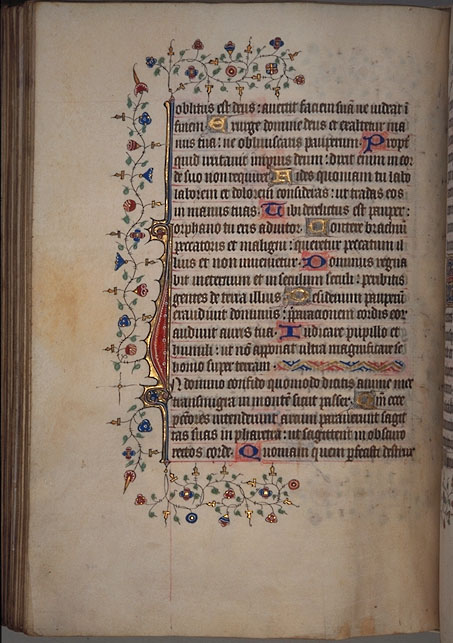 oblitus est deus : auertit faciem suā ne uideat ī
finem Exurge domine deus et exaltetur ma
nus tua : ne obliuiscaris pauperum. Propt
quid irritauit impius deum : dixit enim in cor
de suo non requiret Uides quoniam tu labo
ra lorem et dolorem consideras : ut tradas eos
in manus tuas. Tibi derelictus est pauper :
orphano tu eris adiutor. Contere brachiū
peccatoris et maligni : queretur peccatum il
lius et non inuenietur. Dominus regna
bit in eternum et in seculum seculi : peribitis
gentes de terra illius Desiderium pauperū
exaudiuit dominus : preparationem cordis eor
audiuit auris tua. Iudicare pupillo et
humili : ut nō apponat ultra magnificare se
homo super terram.
In domino confido quomodo dicitis anime mee
transmigra in montē sicut passer. Qm̄ ecce
pctōres intenderunt arcum parauerunt sagit
tas suas in pharetra : ut sagittent in obscuro
rectos corde. Quoniam que perfecisti destrux̄